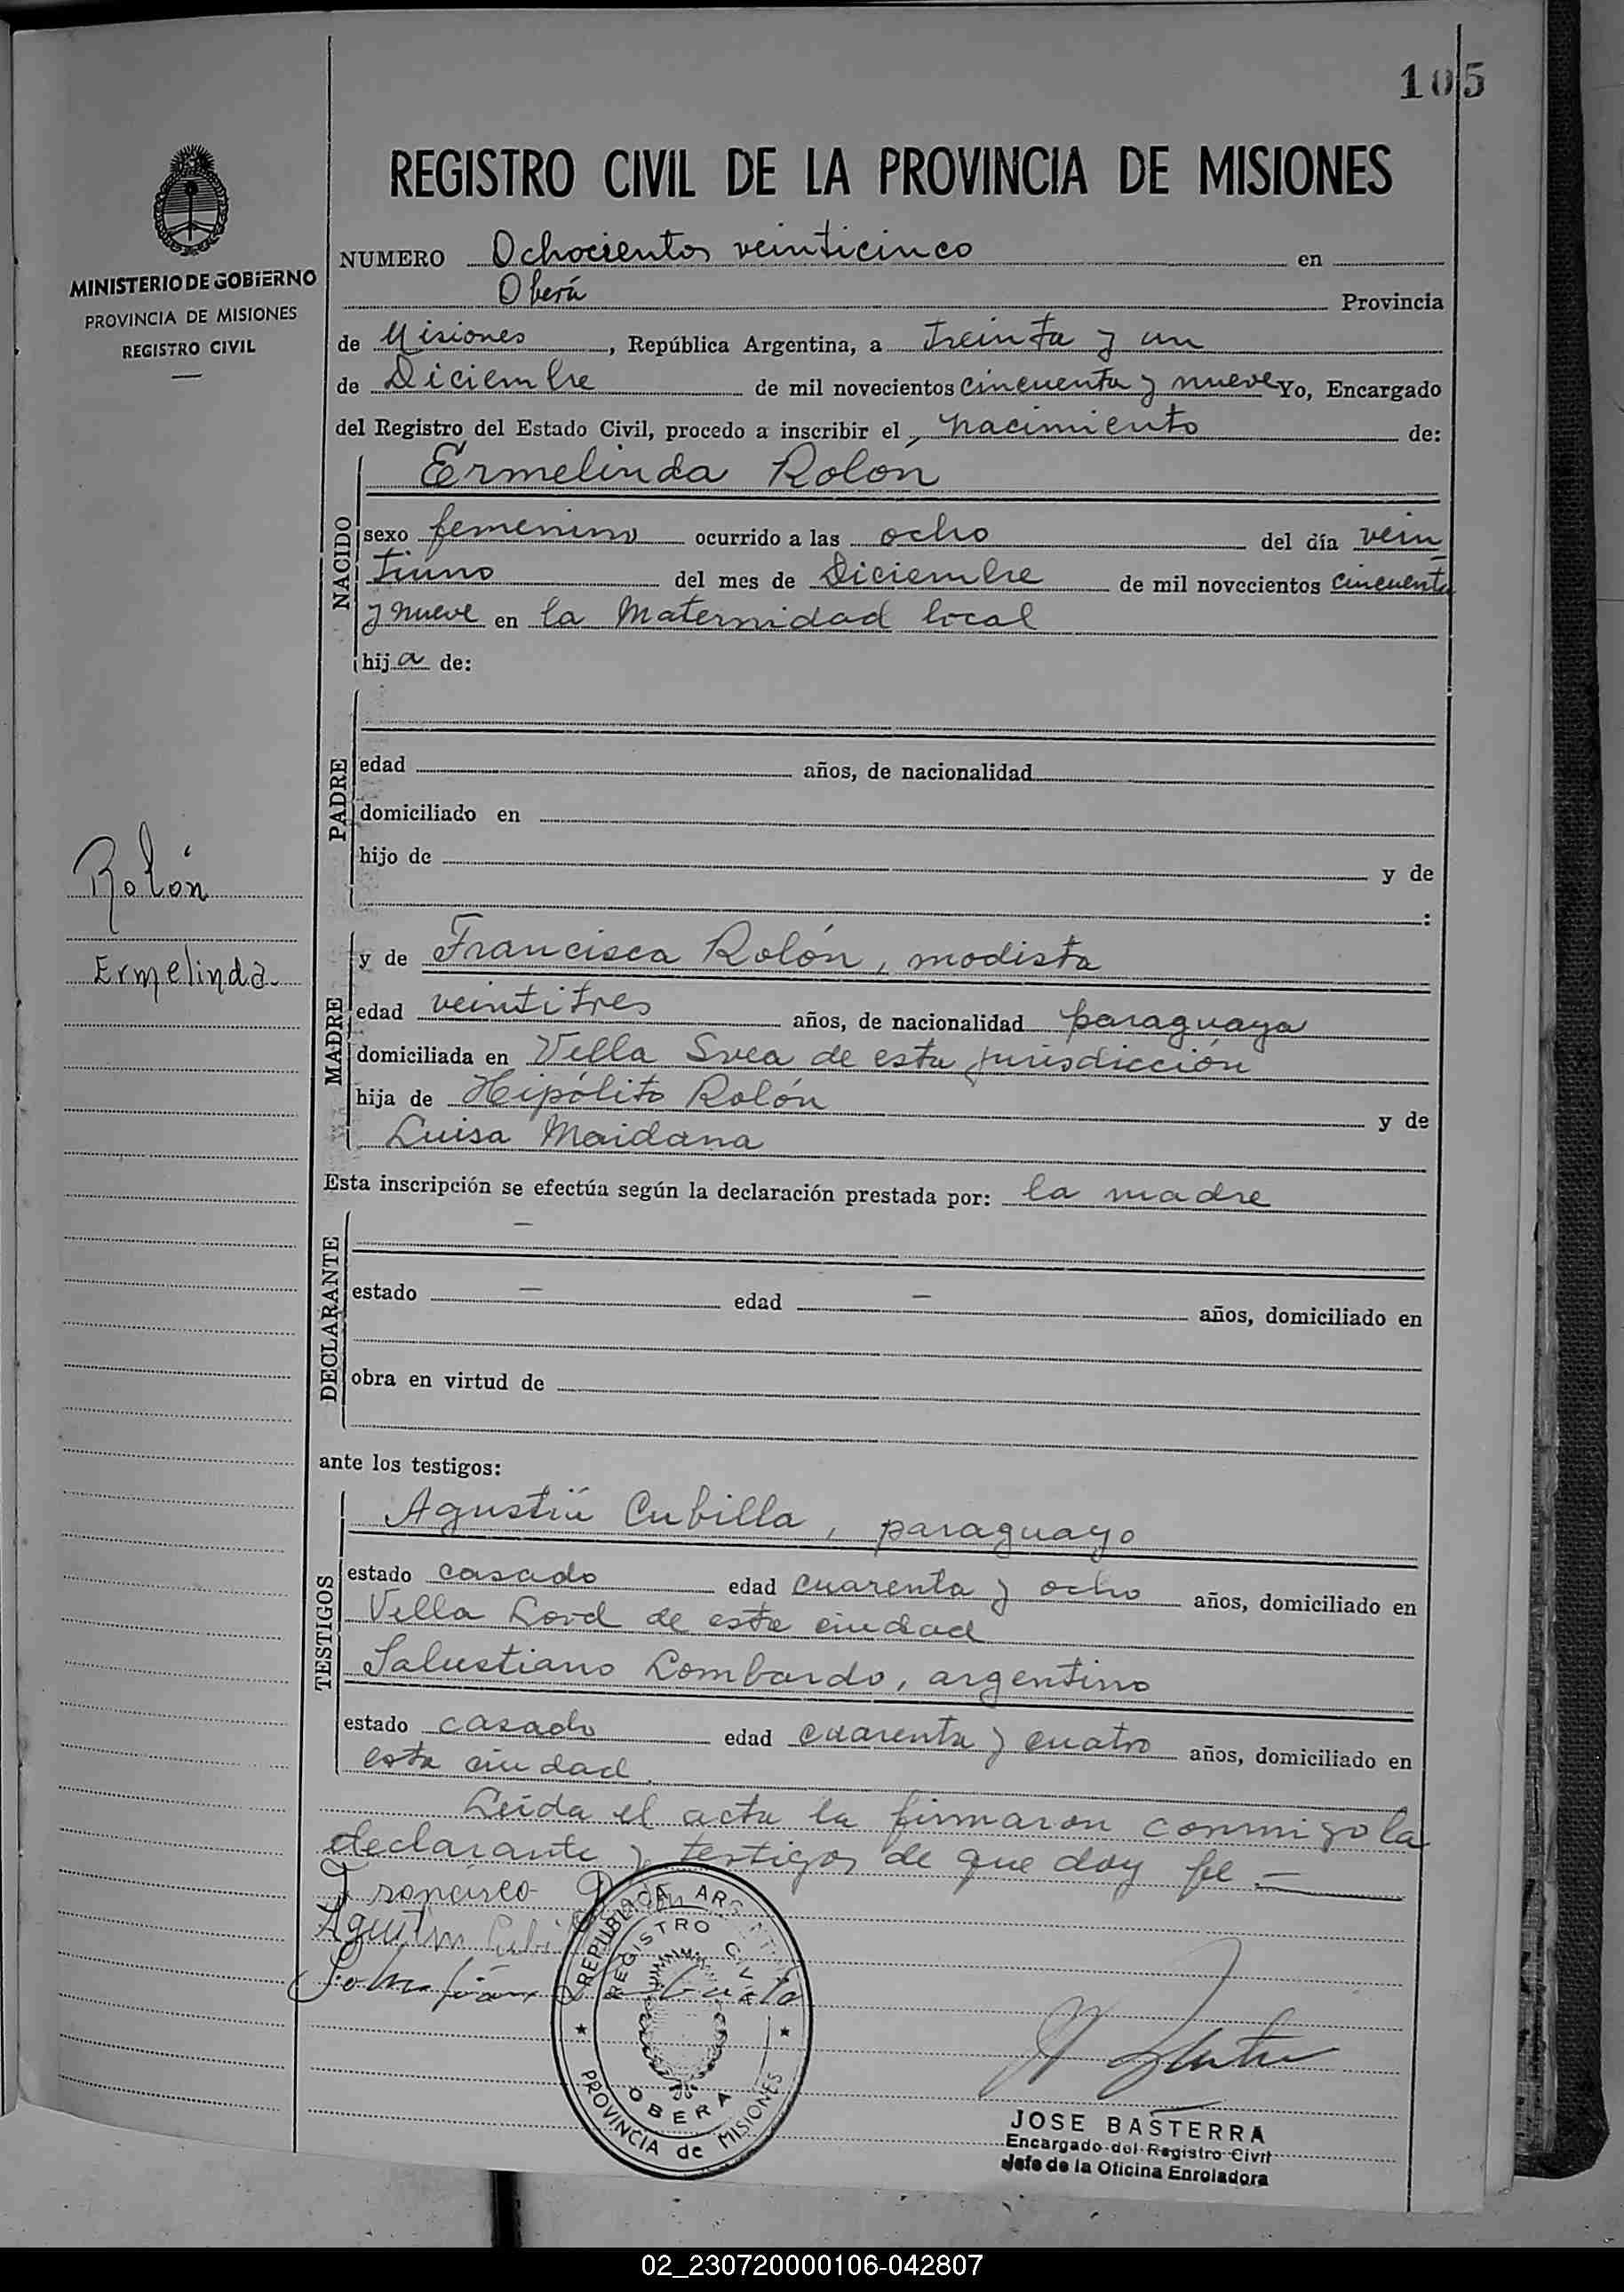 105
REGISTRO CIVIL DE LA PROVINCIA DE MISIONES
MINISTERIO DE GOBIERNO
PROVINCIA DE MISIONES
REGISTRO CIVIL
NUMERO Ochocientos veinticinco en
Oberá Provincia
de Misiones, República Argentina, a treinta y un
de Diciembre de mil novecientos cincuenta y nueve Yo, Encargado
del Registro del Estado Civil, procedo a inscribir el nacimiento de:
NACIDO
Ermelinda Rolón
sexo femenino ocurrido a las ocho del día vein
tiuno del mes de Diciembre de mil novecientos cincuenta
y nueve en la Maternidad local
hija de:
PADRE
edad años, de nacionalidad
domiciliado en
hijo de y de
:
Rolón
Ermelinda
MADRE
y de Francisca Rolón, modista
edad veintitres años, de nacionalidad paraguaya
domiciliada en Villa Svea de esta jurisdicción
hija de Hipólito Rolón y de
Luisa Maidana
Esta inscripción se efectúa según la declaración prestada por: la madre
DECLARANTE
—
estado — edad — años, domiciliado en
obra en virtud de
ante los testigos:
TESTIGOS
Agustín Cubilla, paraguayo
estado casado edad cuarenta y ocho años, domiciliado en
Villa Lord de esta ciudad
Salustiano Lombardo, argentino
estado casado edad cuarenta y cuatro años, domiciliado en
esta ciudad.
Leida el acta la firmaron conmigo la
declarante y testigos de que doy fe —
Francisca Rolón
Agustin Cubilla
REPUBLICA ARGENTINA
REGISTRO CIVIL
OBERA
PROVINCIA de MISIONES
JOSE BASTERRA
Encargado del Registro Civil
Jefe de la Oficina Enroladora
02_230720000106-042807